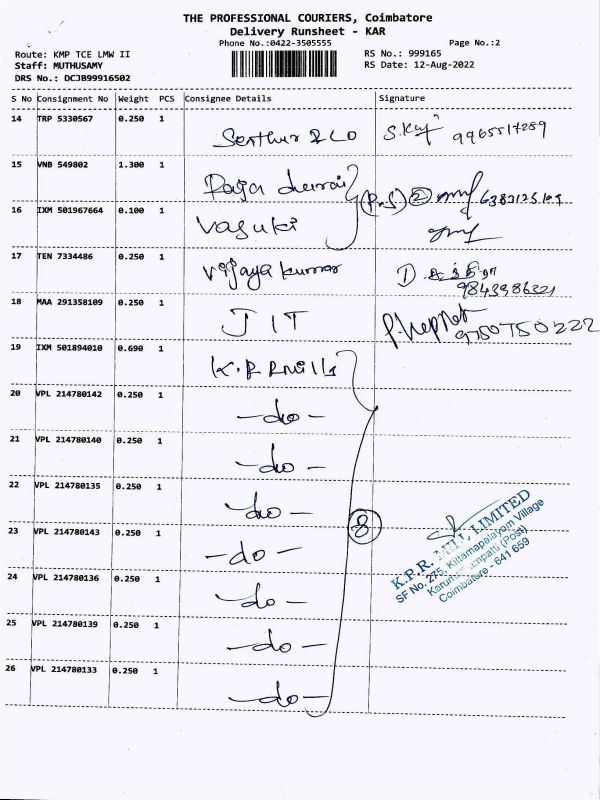 THE PROFESSIONAL COURIERS, Coimbatore
Delivery Runsheet - KAR
Phone No.:0422-3505555 Page No.:2
Route: KMP TCE LMW II RS No.: 999165
Staff: MUTHUSAMY RS Date: 12-Aug-2022
DRS No.: DCJB99916502
S No Consignment No Weight PCS Consignee Details Signature
14 TRP 5330567 0.250 1
15 VNB 549802 1.300 1
16 IXM 501967664 0.100 1 Vasuki
17 TEN 7334486 0.250 1 Vijaya kumar 9843986321
18 MAA 291358109 0.250 1 JIT 9750750222
19 IXM 501894010 0.690 1 K.P.R mills
20 VPL 214780142 0.250 1 -do-
21 VPL 214780140 0.250 1 -do-
22 VPL 214780135 0.250 1 -do-
8
23 VPL 214780143 0.250 1 -do-
24 VPL 214780136 0.250 1 -do-
25 VPL 214780139 0.250 1 -do-
26 VPL 214780133 0.250 1 -do-
K.P.R. MILL LIMITED
SF No. 275, Kittampalayam Village
(Post)
Coimbatore - 641 659